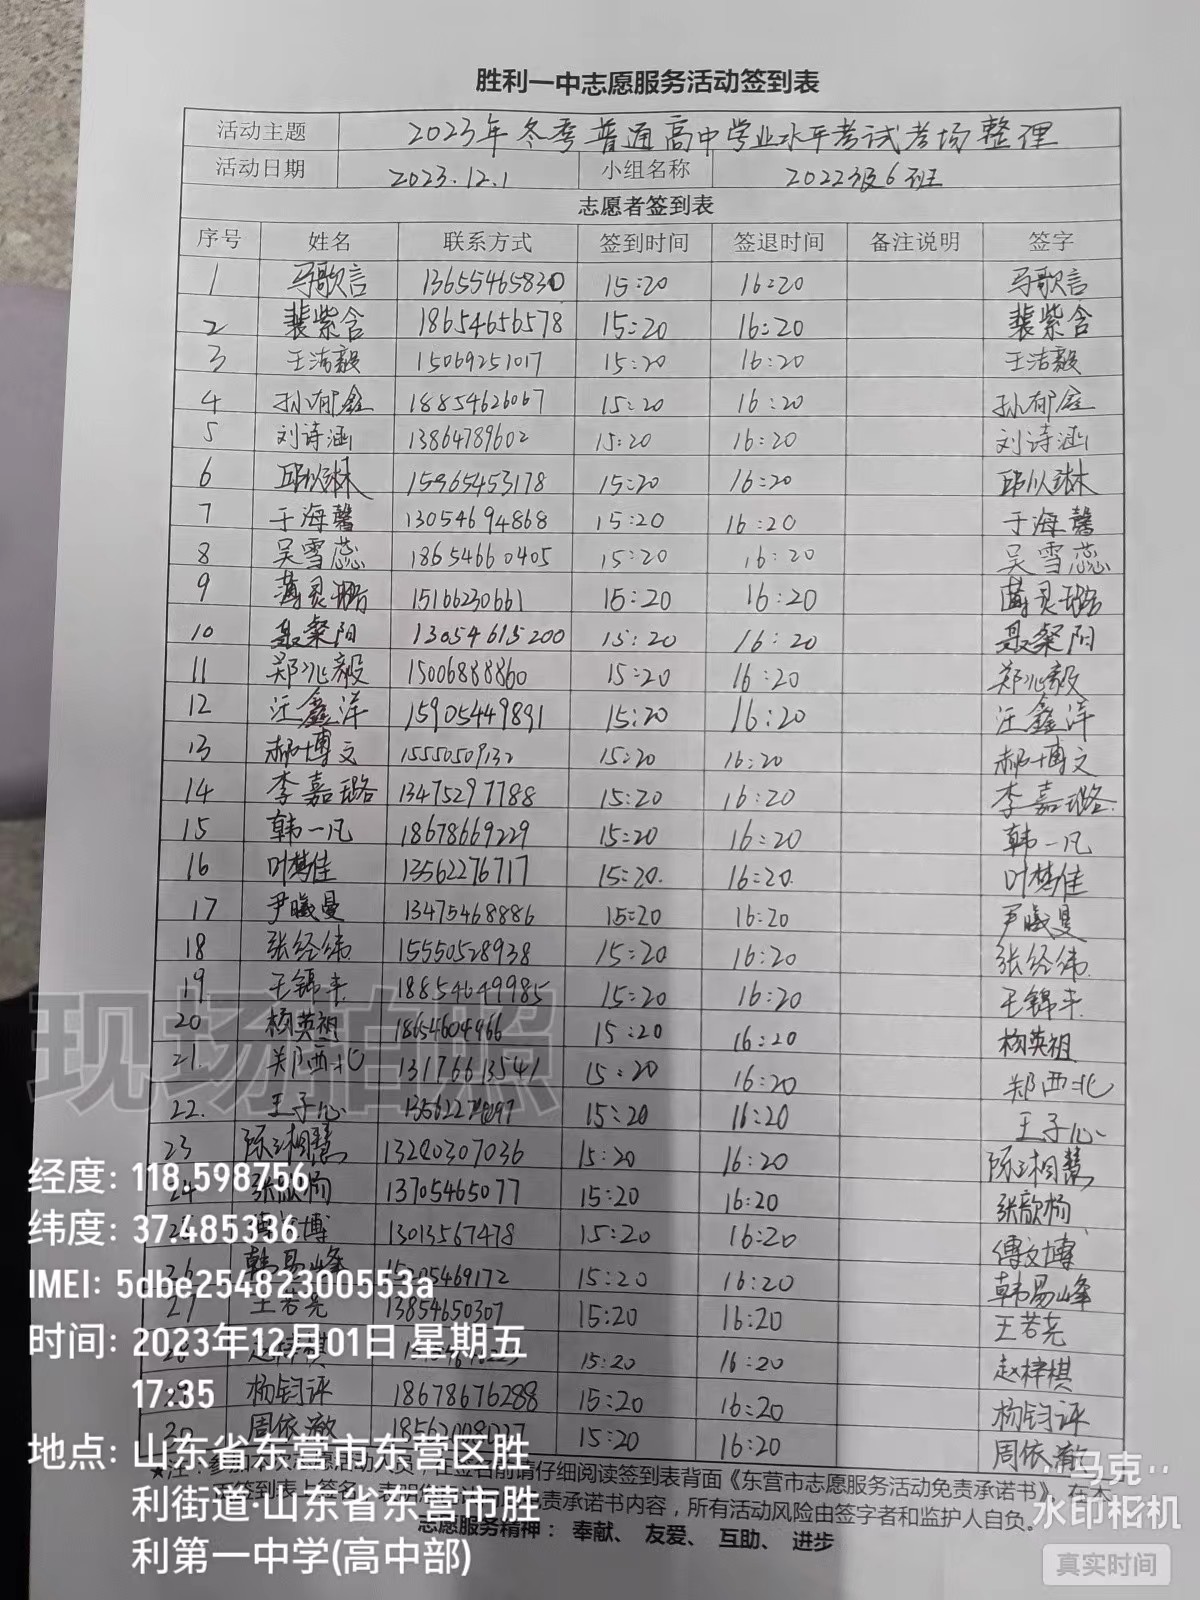 胜利一中志愿服务活动签到表
活动主题 2023年冬季普通高中学业水平考试考场整理
活动日期 2023.12.1 小组名称 2022级6班
志愿者签到表
序号 姓名 联系方式 签到时间 签退时间 备注说明 签字
1 马歌言 13655465830 15:20 16:20 马歌言
2 裴紫含 18654656578 15:20 16:20 裴紫含
3 王洁毅 15069251017 15:20 16:20 王洁毅
4 孙郁鑫 18854626067 15:20 16:20 孙郁鑫
5 刘诗涵 13864789602 15:20 16:20 刘诗涵
6 邱以琳 15965453178 15:20 16:20 邱以琳
7 于海馨 13054694868 15:20 16:20 于海馨
8 吴雪蕊 18654660405 15:20 16:20 吴雪蕊
9 蔺灵璐 15166230661 15:20 16:20 蔺灵璐
10 聂粲阳 13054615200 15:20 16:20 聂粲阳
11 郑兆毅 15006888860 15:20 16:20 郑兆毅
12 汪鑫洋 15905449891 15:20 16:20 汪鑫洋
13 郝博文 15550509132 15:20 16:20 郝博文
14 李嘉璐 13475297788 15:20 16:20 李嘉璐
15 韩一凡 18678669229 15:20 16:20 韩一凡
16 叶梦佳 13562276717 15:20 16:20 叶梦佳
17 尹曦曼 13475468886 15:20 16:20 尹曦曼
18 张经纬 15550528938 15:20 16:20 张经纬
19 王锦丰 18854649985 15:20 16:20 王锦丰
20 杨英祖 18654604966 15:20 16:20 杨英祖
21. 郑西北 13176613541 15:20 16:20 郑西北
22. 王子心 15:20 16:20 王子心
23 13280307036 15:20 16:20
24 张歆杨 13705465077 15:20 16:20 张歆杨
25 傅文博 13013567478 15:20 16:20 傅文博
26 韩易峰 15:20 16:20 韩易峰
27 王若尧 13854650307 15:20 16:20 王若尧
28 赵梓棋 15:20 16:20 赵梓棋
29 杨钧评 18678676288 15:20 16:20 杨钧评
30 周依澈 15:20 16:20 周依澈
★注：参加 志愿活动人员，在签名前请仔细阅读签到表背面《东营市志愿服务活动免责承诺书》，在本
签到表上签名，表明 免责承诺书内容，所有活动风险由签字者和监护人自负。
志愿服务精神： 奉献、 友爱、 互助、 进步
现场拍照
经度: 118.598756
纬度: 37.485336
IMEI: 5dbe25482300553a
时间: 2023年12月01日 星期五
17:35
地点: 山东省东营市东营区胜
利街道·山东省东营市胜
利第一中学(高中部)
马克
水印相机
真实时间